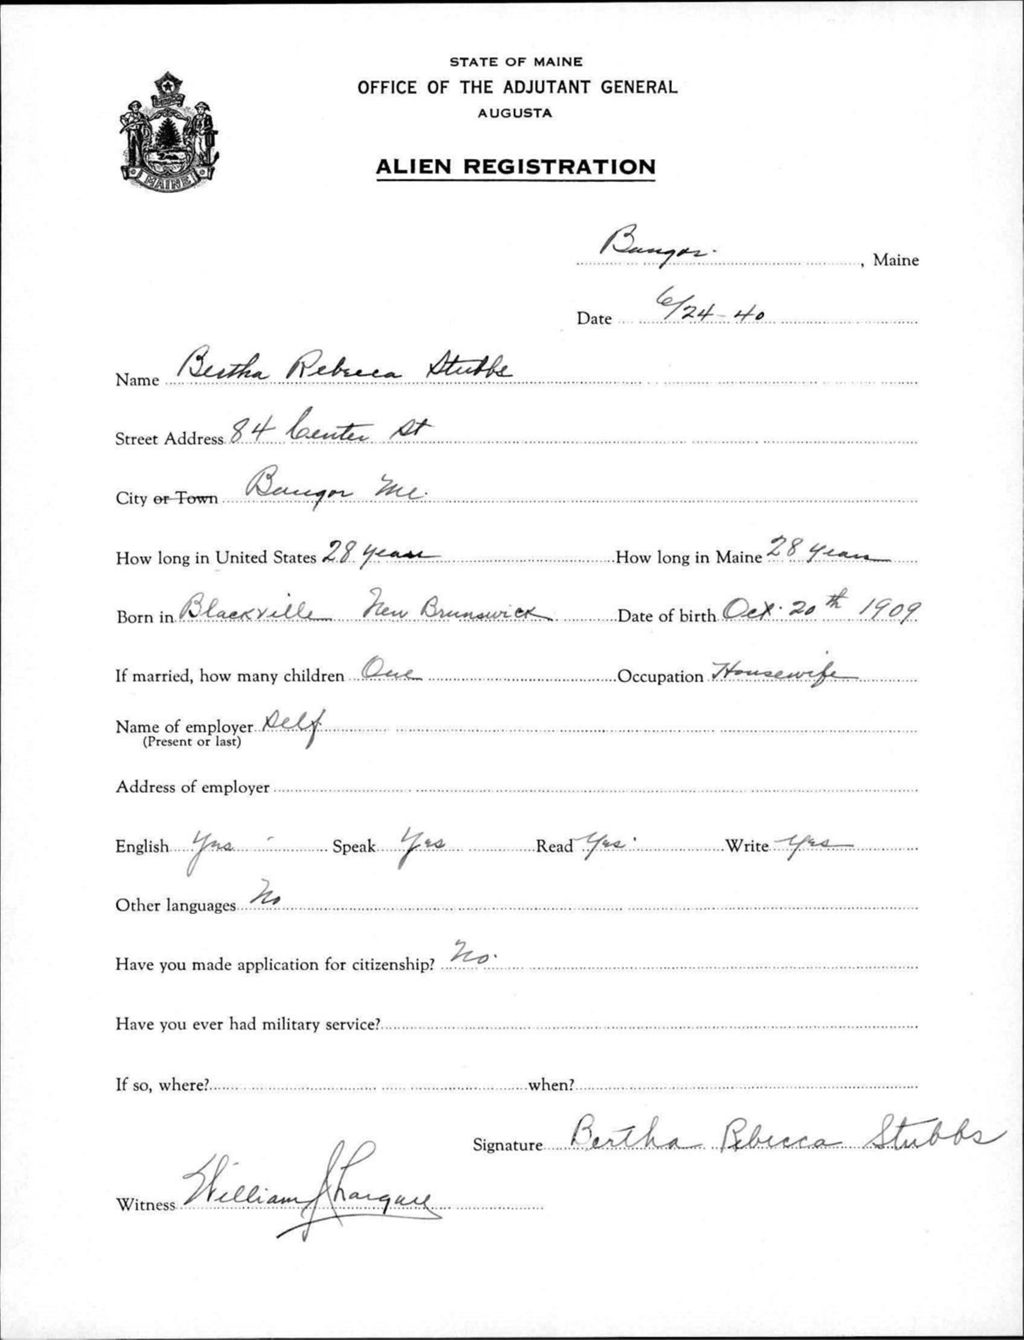 STATE OF MAINE
OFFICE OF THE ADJUTANT GENERAL
AUGUSTA
ALIEN REGISTRATION
MAINE
Bangor, Maine
Date 6/24-40
Name Bertha Rebecca Stubbs
Street Address 84 Center St
City or Town Bangor Me.
How long in United States 28 years How long in Maine 28 years
Born in Blackville New Brunswick Date of birth Oct. 20th 1909
If married, how many children One Occupation Housewife
Name of employer Self
(Present or last)
Address of employer
English Yes Speak Yes Read Yes Write Yes
Other languages No
Have you made application for citizenship? No.
Have you ever had military service?
If so, where? when?
Signature Bertha Rebecca Stubbs
Witness William J